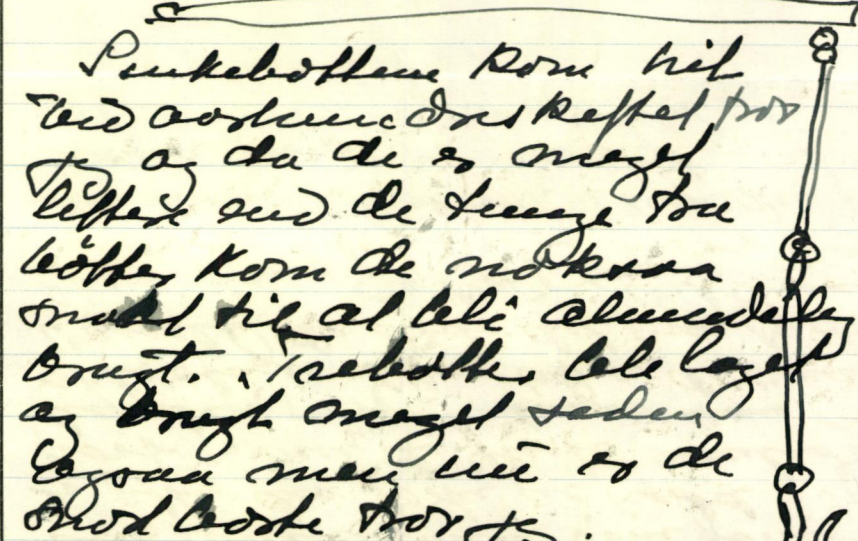 Sinkebøttene kom hit
ved aarhundreskiftet tror
jeg og da de er meget
lettere end de tunge træ
bøtter kom de noksaa
snart til at bli almindelig
brugt. Træbøtter ble laget
og brugt meget siden
ogsaa men nu er de
snart borte tror jeg.